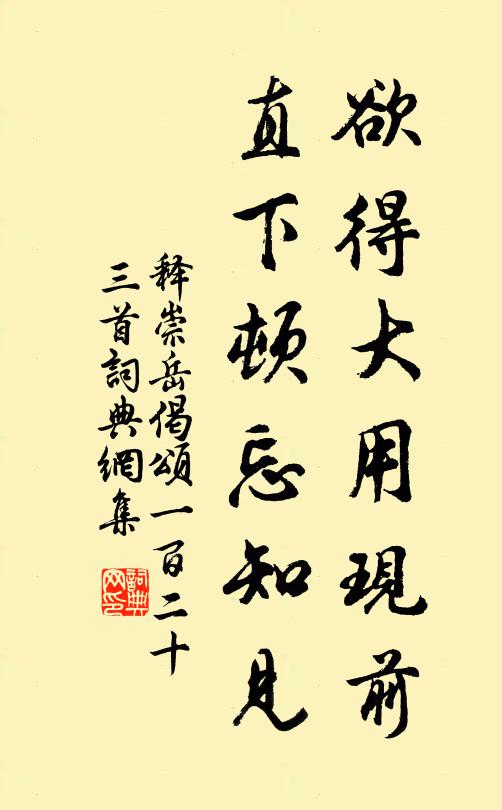 欲得大用現前
直下頓忘知見
释崇岳偈頌一百二十
三首詞典網集
詞典
网印